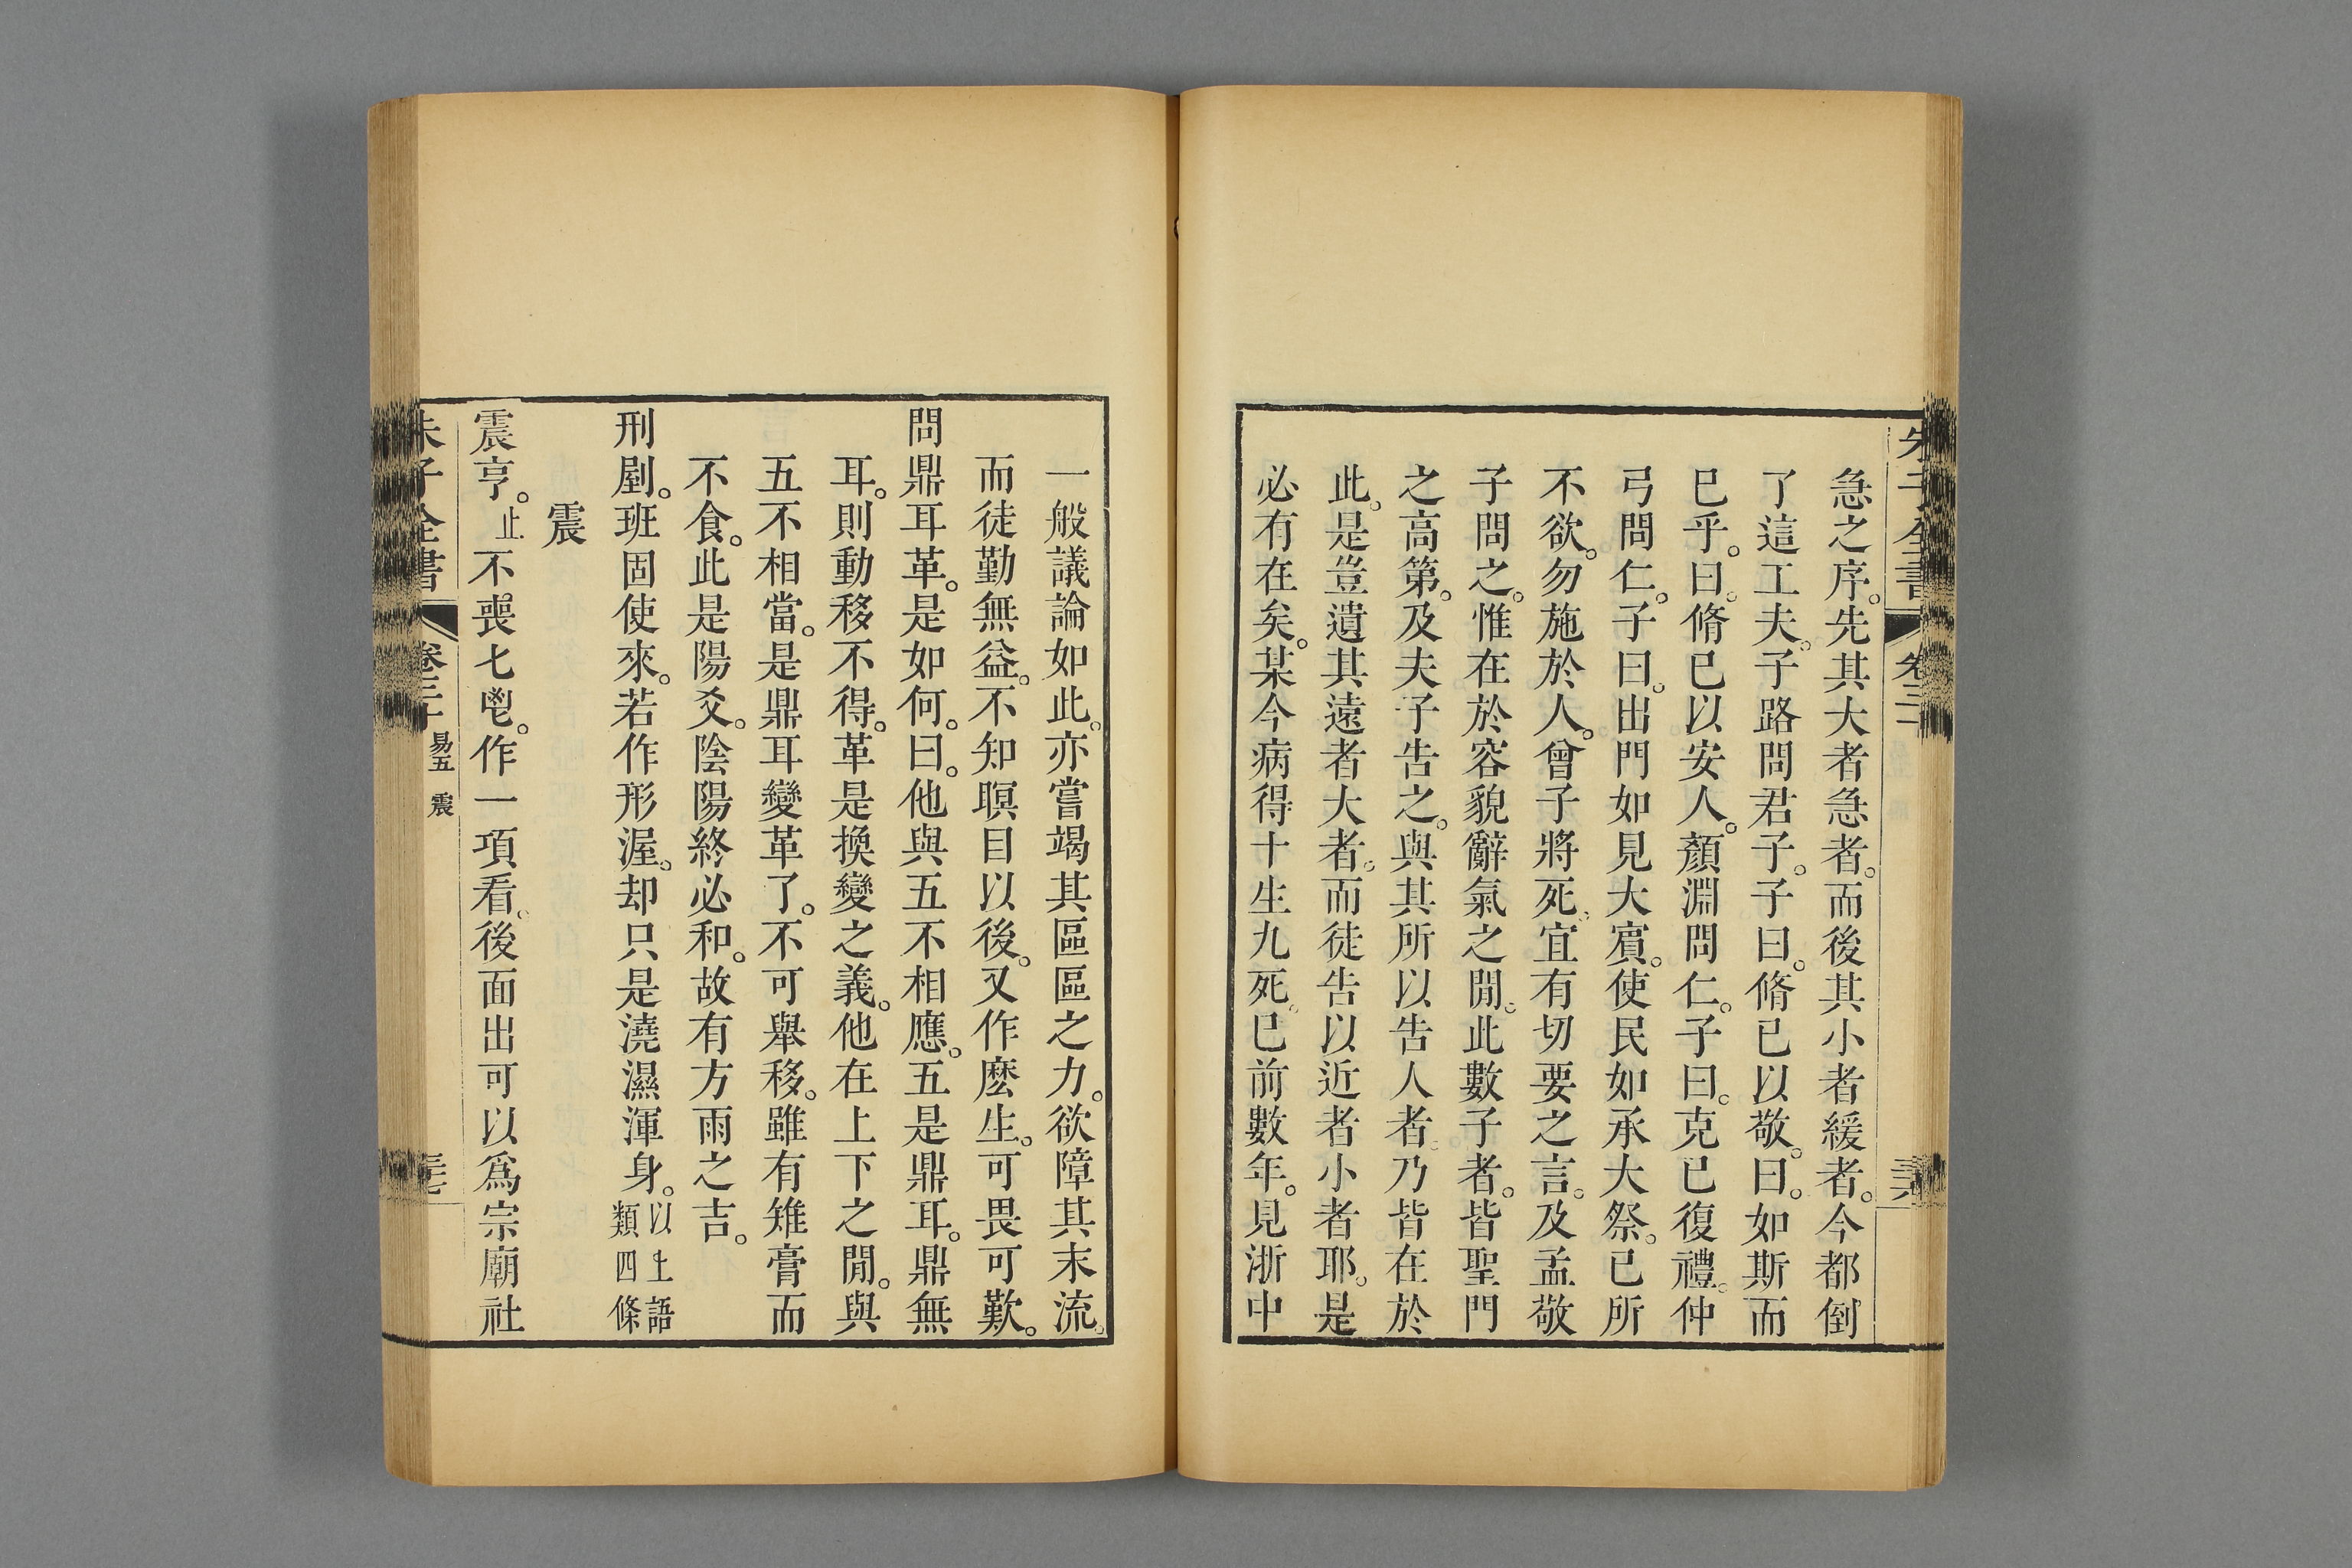 朱子全書 卷三十 三六
急之序。先其大者急者。而後其小者緩者。今都倒
了這工夫。子路問君子。子曰。脩己以敬。曰。如斯而
已乎。曰。脩己以安人。顏淵問仁。子曰。克己復禮。仲
弓問仁。子曰。出門如見大賓。使民如承大祭。己所
不欲。勿施於人。曾子將死。宜有切要之言。及孟敬
子問之。惟在於容貌辭氣之閒。此數子者。皆聖門
之高第。及夫子告之。與其所以告人者。乃皆在於
此。是豈遺其遠者大者。而徒告以近者小者耶。是
必有在矣。某今病得十生九死。已前數年。見浙中
一般議論如此。亦嘗竭其區區之力。欲障其末流。
而徒勤無益。不知瞑目以後。又作麽生。可畏可歎。
問鼎耳革。是如何。曰。他與五不相應。五是鼎耳。鼎無
耳。則動移不得。革是換變之義。他在上下之閒。與
五不相當。是鼎耳變革了。不可舉移。雖有雉膏而
不食。此是陽爻。陰陽終必和。故有方雨之吉。
刑剭。班固使來。若作形渥。却只是澆濕渾身。以上語類四條
震
震亨。止不喪匕鬯。作一項看。後面出可以爲宗廟社
朱子全書 卷三十 易五 震 三七